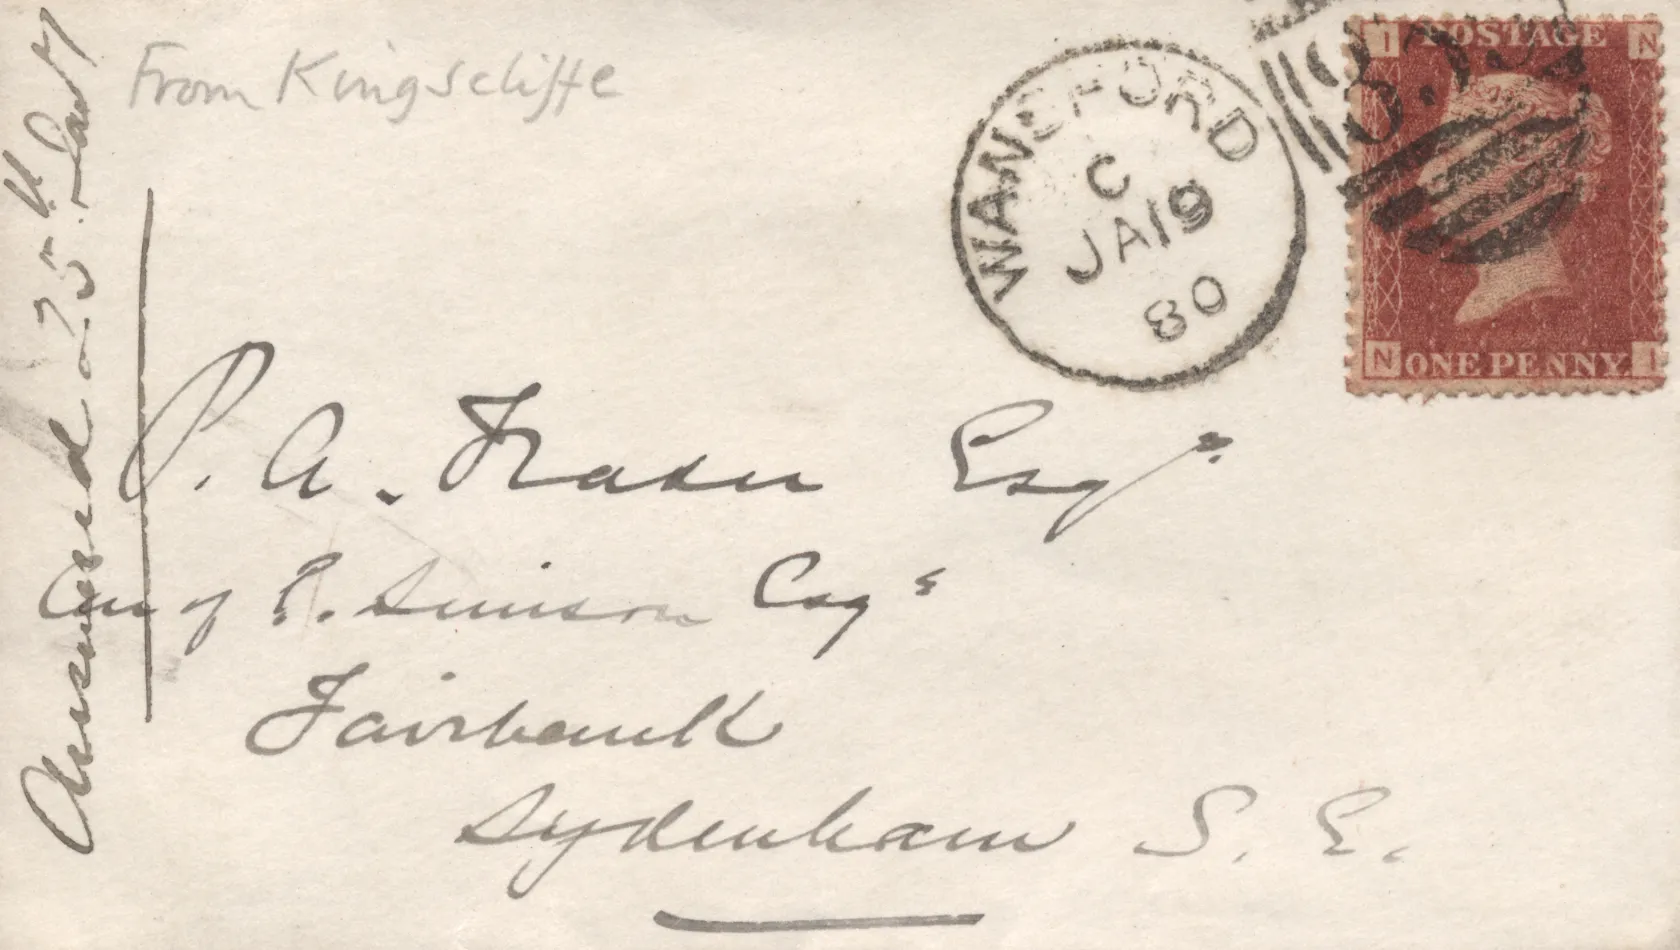 From Kingscliffe
WANSFORD
C
JA 19
80
I POSTAGE N
N ONE PENNY. I
Answered 25th Jany
P. A. Fraser Esqr
Care of P. Simson Esqr
Fairbank
Sydenham S. E.